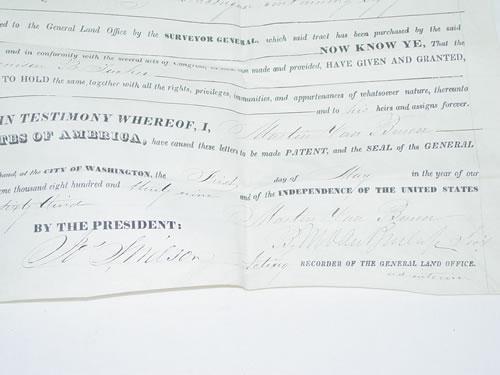 containing
ed to the General Land Office by the SURVEYOR GENERAL, which said tract has been purchased by the said
NOW KNOW YE, That the
and in conformity with the several acts of Congress, made and provided, HAVE GIVEN AND GRANTED,
TO HOLD the same, together with all the rights, privileges, immunities, and appurtenances of whatsoever nature, thereunto
and to his heirs and assigns forever.
IN TESTIMONY WHEREOF, I, Martin Van Buren
TES OF AMERICA, have caused these letters to be made PATENT, and the SEAL of the GENERAL
hand, at the CITY OF WASHINGTON, the first day of May in the year of our
ne thousand eight hundred and thirty nine and of the INDEPENDENCE OF THE UNITED STATES
Sixty third
BY THE PRESIDENT: Martin Van Buren
Acting RECORDER OF THE GENERAL LAND OFFICE.
ad interim